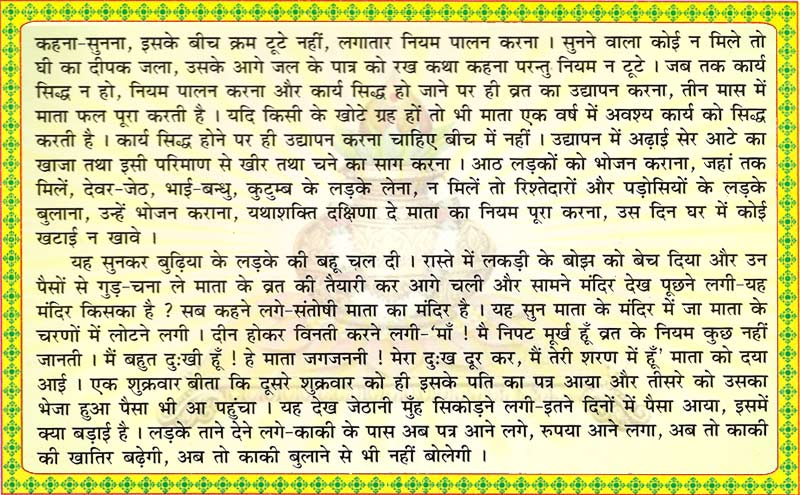 कहना-सुनना, इसके बीच क्रम टूटे नहीं, लगातार नियम पालन करना । सुनने वाला कोई न मिले तो
घी का दीपक जला, उसके आगे जल के पात्र को रख कथा कहना परन्तु नियम न टूटे । जब तक कार्य
सिद्ध न हो, नियम पालन करना और कार्य सिद्ध हो जाने पर ही व्रत का उद्यापन करना, तीन मास में
माता फल पूरा करती है । यदि किसी के खोटे ग्रह हों तो भी माता एक वर्ष में अवश्य कार्य को सिद्ध
करती है । कार्य सिद्ध होने पर ही उद्यापन करना चाहिए बीच में नहीं । उद्यापन में अढ़ाई सेर आटे का
खाजा तथा इसी परिमाण से खीर तथा चने का साग करना । आठ लड़कों को भोजन कराना, जहां तक
मिलें, देवर-जेठ, भाई-बन्धु, कुटुम्ब के लड़के लेना, न मिलें तो रिश्तेदारों और पड़ोसियों के लड़के
बुलाना, उन्हें भोजन कराना, यथाशक्ति दक्षिणा दे माता का नियम पूरा करना, उस दिन घर में कोई
खटाई न खावे ।
यह सुनकर बुढ़िया के लड़के की बहू चल दी । रास्ते में लकड़ी के बोझ को बेच दिया और उन
पैसों से गुड़-चना ले माता के व्रत की तैयारी कर आगे चली और सामने मंदिर देख पूछने लगी-यह
मंदिर किसका है ? सब कहने लगे-संतोषी माता का मंदिर है । यह सुन माता के मंदिर में जा माता के
चरणों में लोटने लगी । दीन होकर विनती करने लगी-'माँ ! मै निपट मूर्ख हूँ व्रत के नियम कुछ नहीं
जानती । मैं बहुत दुःखी हूँ ! हे माता जगजननी ! मेरा दुःख दूर कर, मैं तेरी शरण में हूँ' माता को दया
आई । एक शुक्रवार बीता कि दूसरे शुक्रवार को ही इसके पति का पत्र आया और तीसरे को उसका
भेजा हुआ पैसा भी आ पहुंचा । यह देख जेठानी मुँह सिकोड़ने लगी-इतने दिनों में पैसा आया, इसमें
क्या बड़ाई है । लड़के ताने देने लगे-काकी के पास अब पत्र आने लगे, रुपया आने लगा, अब तो काकी
की खातिर बढ़ेगी, अब तो काकी बुलाने से भी नहीं बोलेगी ।